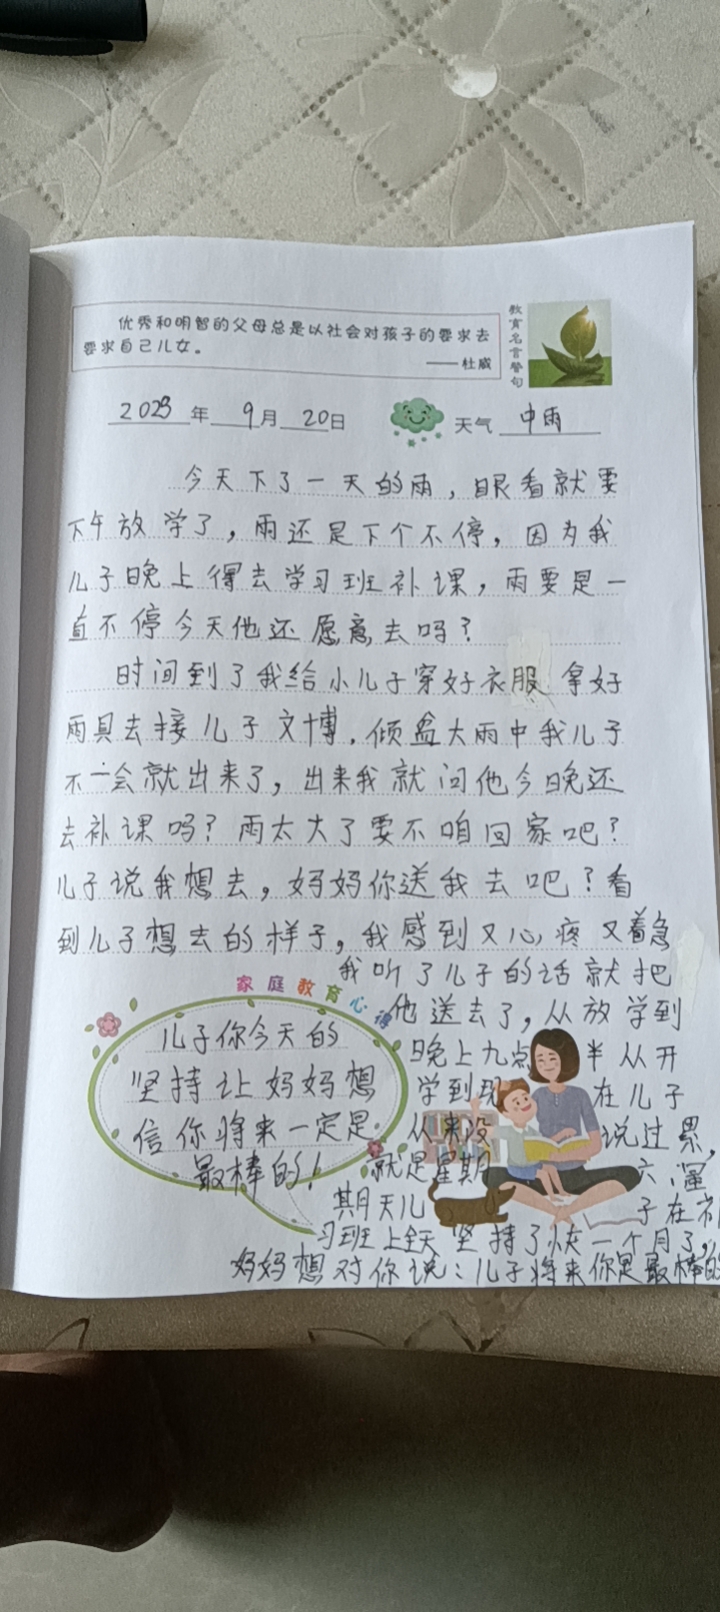 优秀和明智的父母总是以社会对孩子的要求去
要求自己儿女。
——杜威
教育名言警句
2023年 9月 20日 天气 中雨
今天下了一天的雨，眼看就要
下午放学了，雨还是下个不停，因为我
儿子晚上得去学习班补课，雨要是一
直不停今天他还愿意去吗？
时间到了我给小儿子穿好衣服拿好
雨具去接儿子文博，倾盆大雨中我儿子
不一会就出来了，出来我就问他今晚还
去补课吗？雨太大了要不咱回家吧？
儿子说我想去，妈妈你送我去吧？看
到儿子想去的样子，我感到又心疼又着急
我听了儿子的话就把
他送去了，从放学到
晚上九点半从开
学到现在儿子
从来没说过累，
就是星期六
期天儿子在补
习班上全天坚持了快一个月了，
妈妈想对你说：儿子将来你是最棒的
家庭教育心得
儿子你今天的
坚持让妈妈想
信你将来一定是
最棒的！